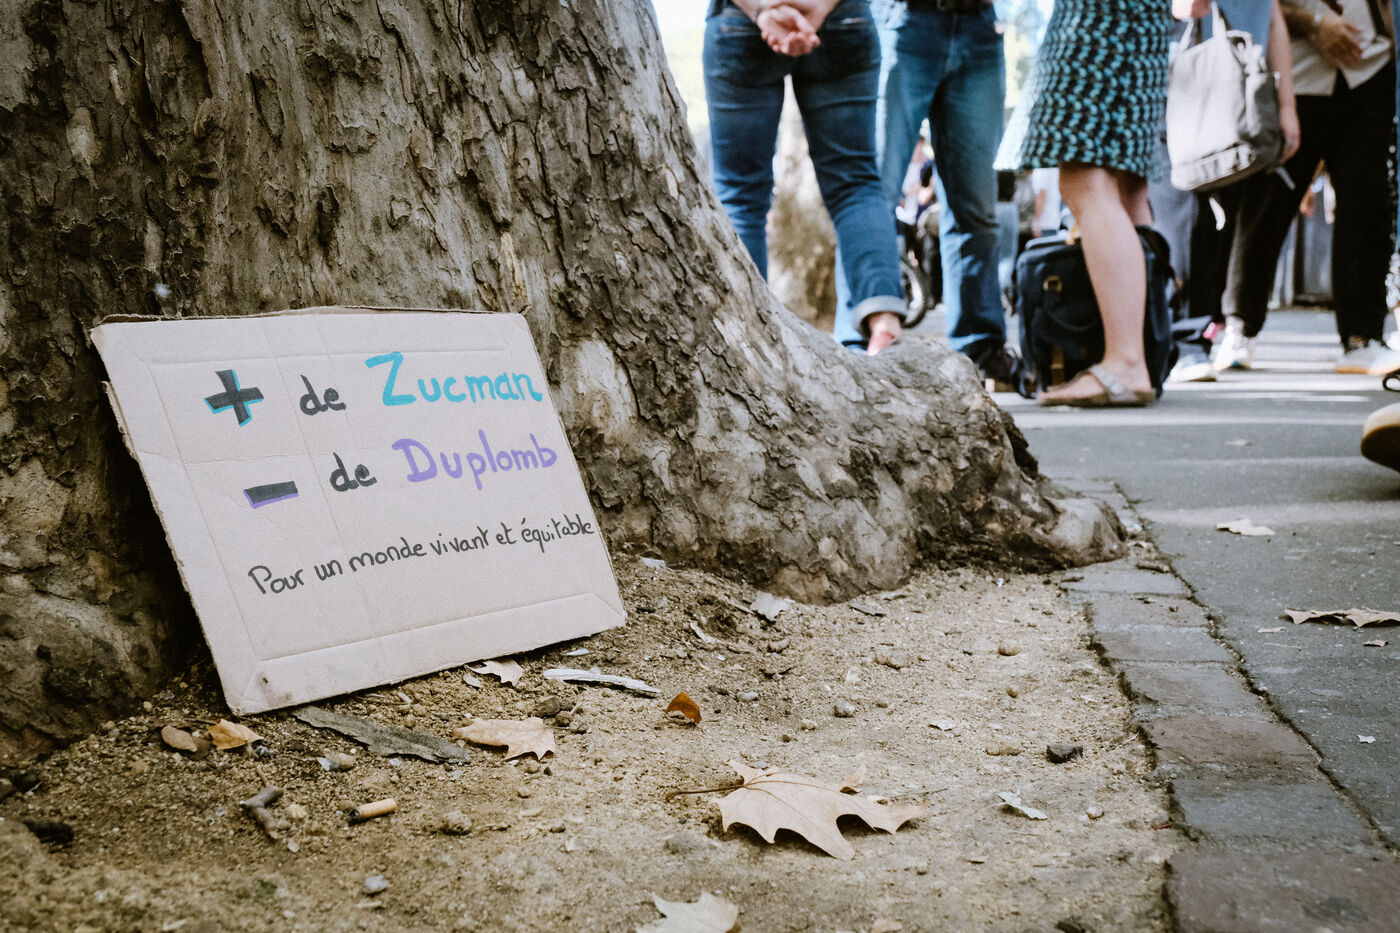 + de Zucman
- de Duplomb
Pour un monde vivant et équitable